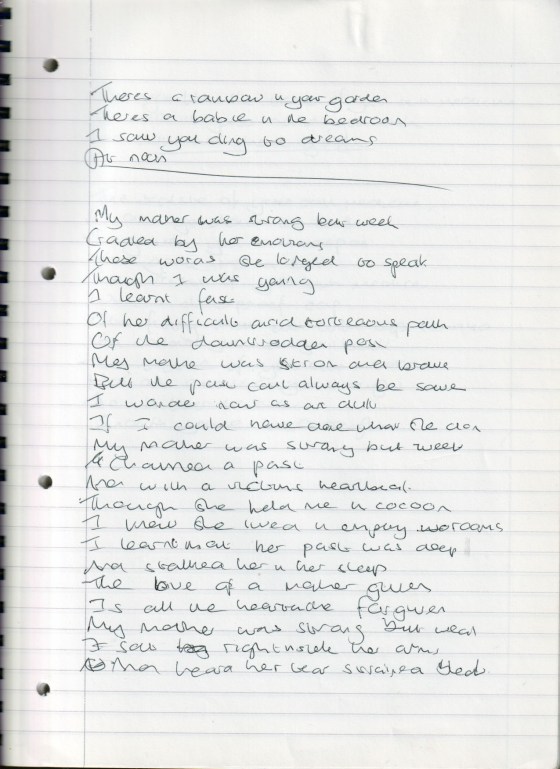 Theres a rainbow in your garden
Theres a babie in the bedroom
I saw you cling to dreams
At noon
My mother was strong but week
Cradled by her emotions
Those words she longed to speak
Though I was young
I learnt fast
Of her difficult and torteous path
Of the downtrodden past
My mother was strong and brave
But the past cant always be save
I wonder now as an adult
If I could have done what she did
My mother was strong but week
Chained a past
And with a victims heart
Though she held me in cocoon
I knew she lived in empty rooms
I learnt that her past was deep
And stalked her in her sleep
The love of a mother given
Is all the heartache forgiven
My mother was strong but weak
I saw right inside her arms
And heard her tear stained